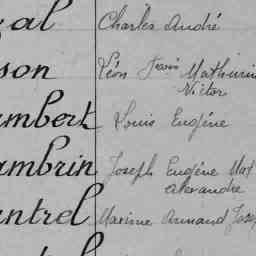 zal Charles André
son Léon Jean Mathurin
Victor
ambert Louis Eugène
ambrin Joseph Eugène Max
Alexandre
antrel Maxime Armand Josep